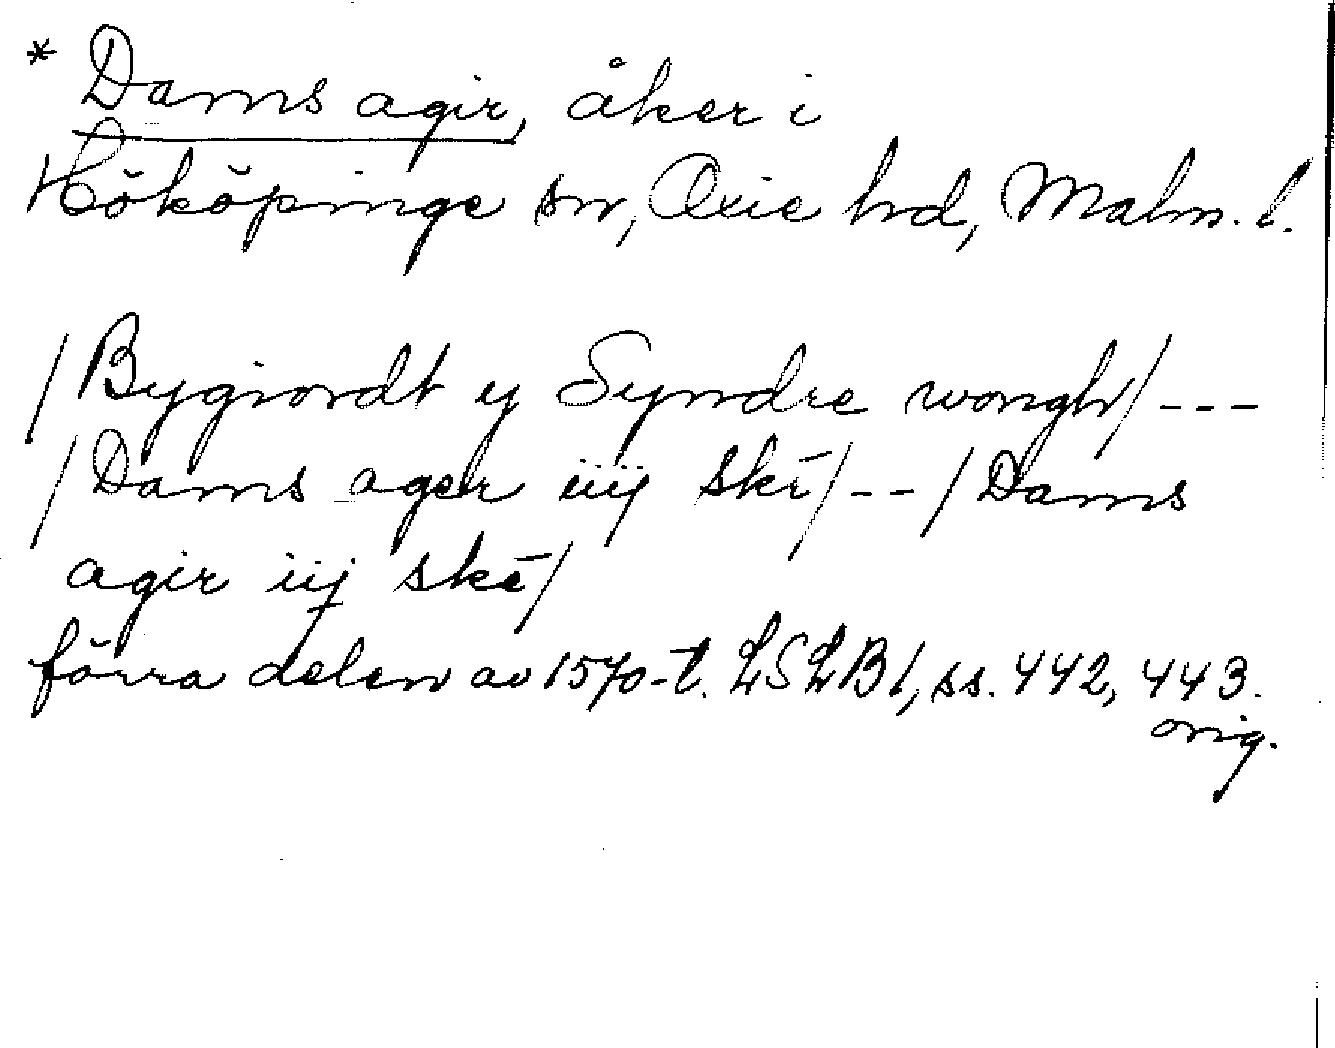 * Dams agir, åker i
Hököpinge sn, Oxie hd, Malm. l.
/Bygiordt ij Syndre wongh/ ---
/Dams ager iiij skē/ -- /Dams
agir iij skē/
förra delen av 1570-t. LSLB1, ss. 442, 443.
orig.